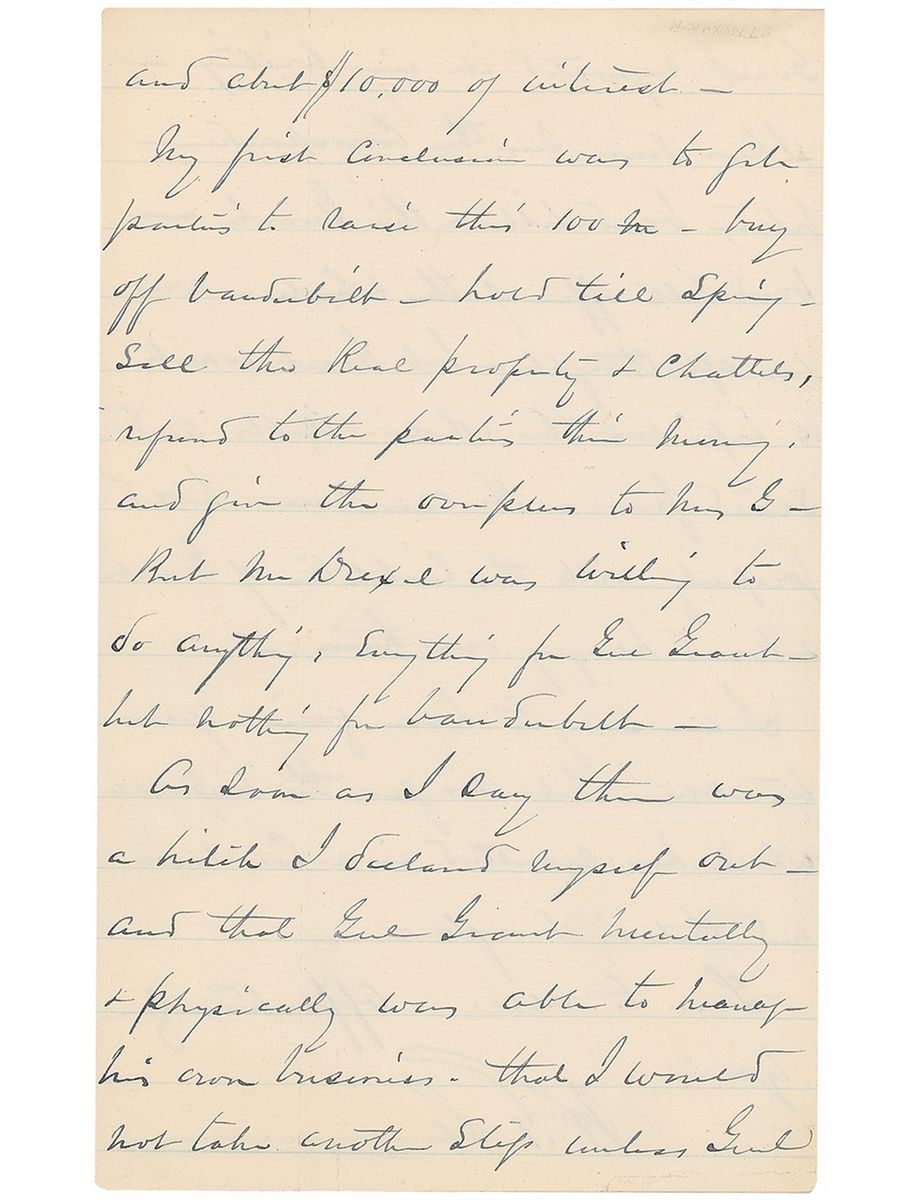 and about $10,000 of interest —
My first conclusion was to get
parties to raise this 100 m — buy
off Vanderbilt — hold till Spring —
Sell the Real property & Chattels,
refund to the parties their money,
and give the overplus to Mrs G —
But Mr Drexel was willing to
do anything, Everything for Genl Grant —
but nothing for Vanderbilt —
As soon as I saw there was
a hitch I declared myself out —
and that Genl Grant mentally
& physically was able to manage
his own business. that I would
not take another Step unless Genl